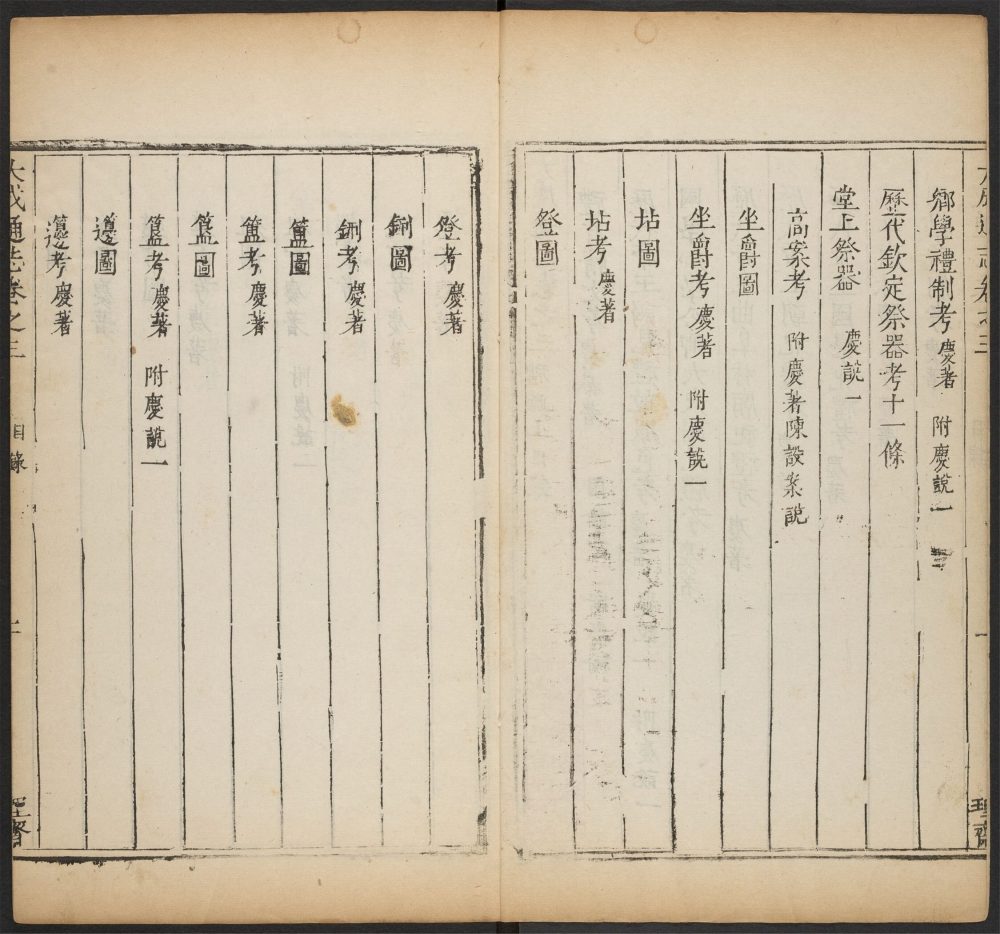 大成通志卷之三
一
理齋
鄉學禮制考 慶著 附慶說一
歷代欽定祭器考十一條
堂上祭器 慶說一
高案考 附慶著陳設案說
坐爵圖
坐爵考 慶著 附慶說一
坫圖
坫考 慶著
登圖
登考 慶著
鉶圖
鉶考 慶著
簠圖
簠考 慶著
簋圖
簋考 慶著 附慶說一
籩圖
籩考 慶著
大成通志卷之三 目錄 二
理齋